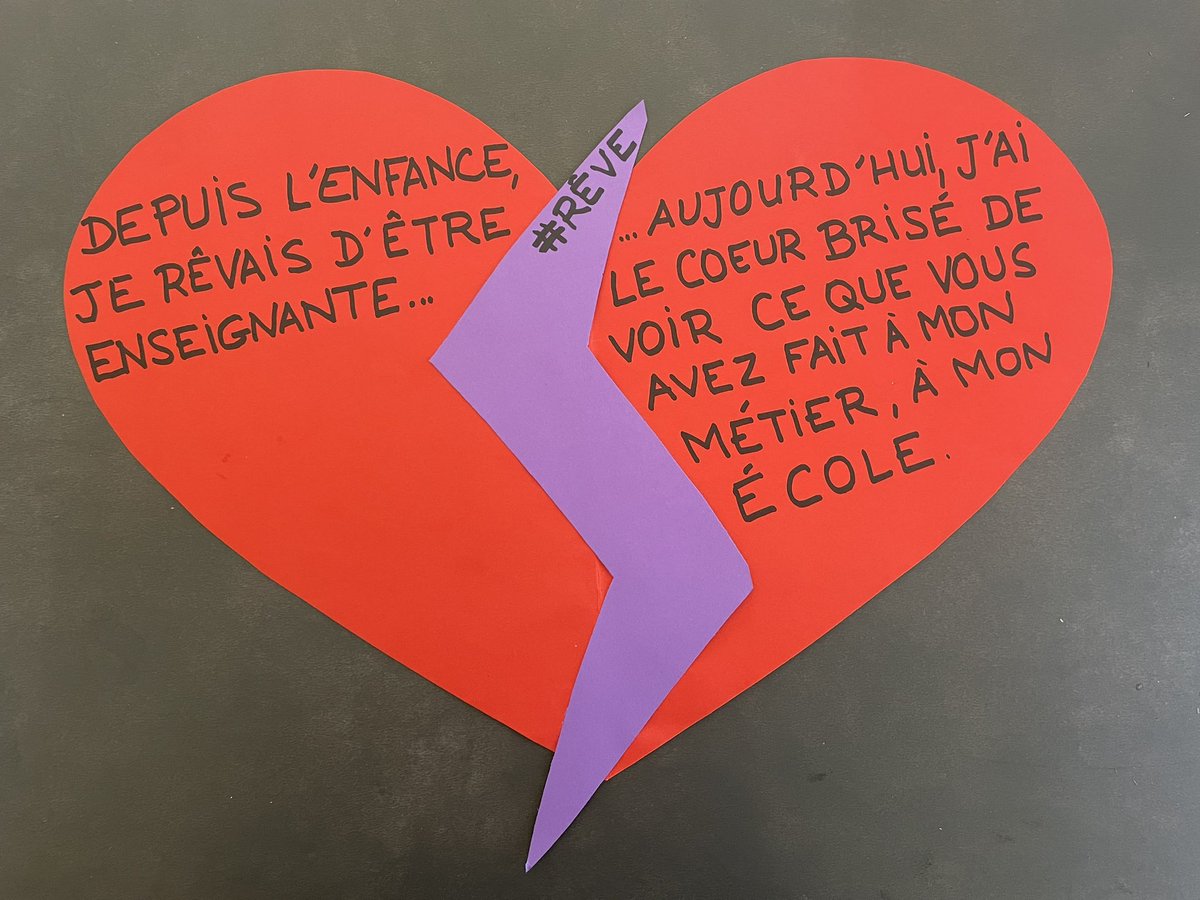 DEPUIS L'ENFANCE,
JE RÊVAIS D'ÊTRE
ENSEIGNANTE...
#RÊVE
...AUJOURD'HUI, J'AI
LE COEUR BRISÉ DE
VOIR CE QUE VOUS
AVEZ FAIT À MON
MÉTIER, À MON
ÉCOLE.